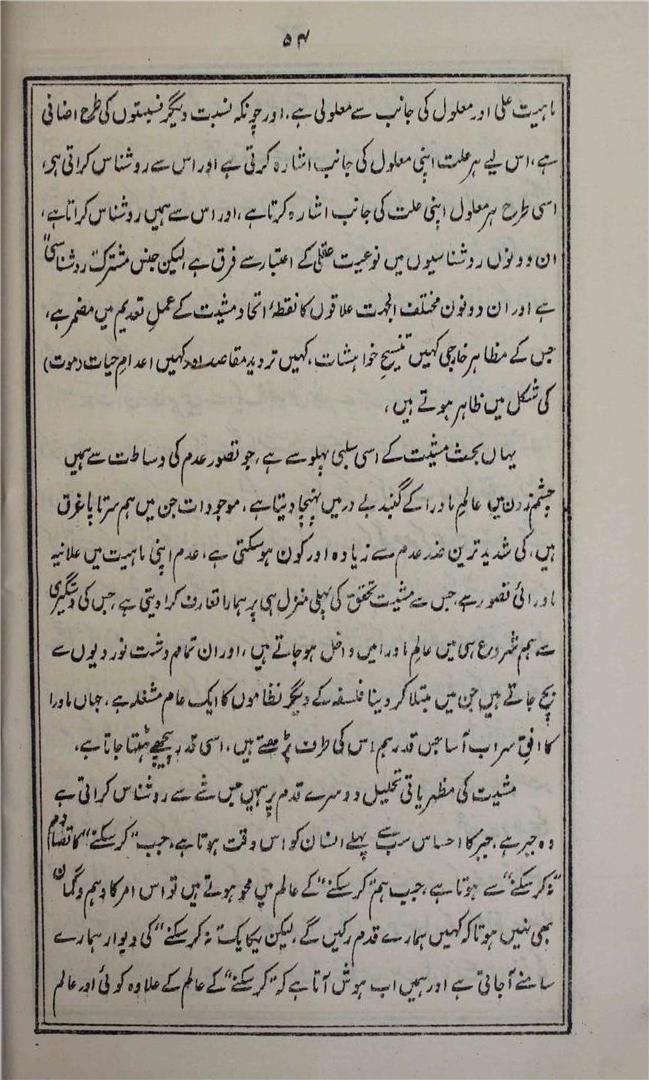 ۵۴
ماہیت علی اور معلول کی جانب سے معلولی ہے، اور چونکہ نسبت دیگر نسبتوں کی طرح اضافی
ہے، اس لیے ہر علت اپنی معلول کی جانب اشارہ کرتی ہے اور اس سے روشناس کراتی ہی،
اسی طرح ہر معلول اپنی علت کی جانب اشارہ کرتا ہے، اور اس سے ہمیں روشناس کراتا ہے،
ان دونوں روشناسیوں میں نوعیت عقلی کے اعتبار سے فرق ہے لیکن جنس مشترک "روشناسی"
ہے اور ان دونوں مختلف الجہت علاقوں کا نقطۂ اتحاد مشیت کے عمل تعدیم میں مضمر ہے،
جس کے مظاہر خارجی کہیں تنسیخ خواہشات، کہیں تردید مقاصد اور کہیں اعدام حیات (موت)
کی شکل میں ظاہر ہوتے ہیں،
یہاں بحث مشیت کے اسی سلبی پہلو سے ہے، جو تصور عدم کی وساطت سے ہمیں
چشم زدن میں عالم ماورا کے گنبد بے در میں پہنچا دیتا ہے، موجودات جن میں ہم سرتاپا غرق
ہیں، کی شدید ترین ضد عدم سے زیادہ اور کون ہو سکتی ہے، عدم اپنی ماہیت میں علانیہ
ماورائی تصور ہے، جس سے مشیت تحقق کی پہلی منزل ہی پر ہمارا تعارف کرا دیتی ہے، جس کی دستگیری
سے ہم شروع ہی میں عالم ماورا میں داخل ہو جاتے ہیں، اور ان تمام دشت نوردیوں سے
بچ جاتے ہیں جن میں مبتلا کر دینا فلسفہ کے دیگر نظاموں کا ایک عام مشغلہ ہے، جہاں ماورا
کا افق سراب آسا جس قدر ہم اس کی طرف بڑھتے ہیں، اسی قدر پیچھے ہٹتا جاتا ہے،
مشیت کی مظہریاتی تحلیل دوسرے قدم پر ہمیں جس شے سے روشناس کراتی ہے
وہ جبر ہے، جبر کا احساس سب سے پہلے انسان کو اس وقت ہوتا ہے، جب "کر سکنے" کا تصادم
"نہ کر سکنے" سے ہوتا ہے، جب ہم "کر سکنے" کے عالم میں محو ہوتے ہیں تو اس امر کا وہم و گمان
بھی نہیں ہوتا کہ کہیں ہمارے قدم رکیں گے، لیکن یکایک "نہ کر سکنے" کی دیوار ہمارے
سامنے آ جاتی ہے اور ہمیں اب ہوش آتا ہے کہ "کر سکنے" کے عالم کے علاوہ کوئی اور عالم